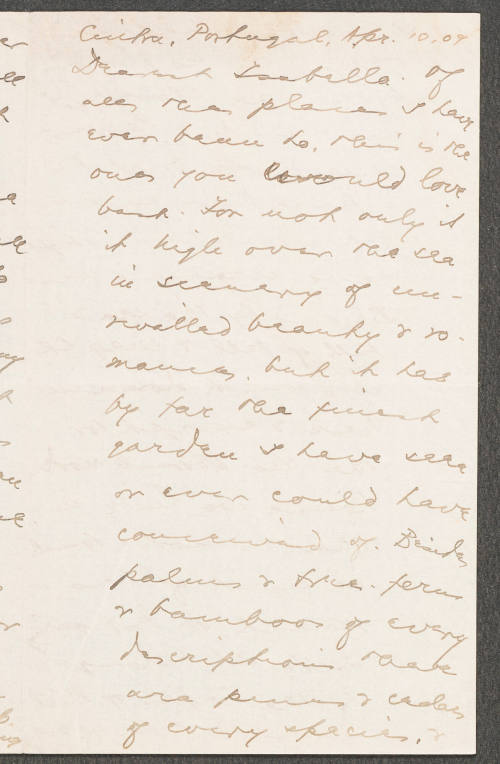 Cintra, Portugal, Apr. 10. 09
Dearest Isabella. Of
all the places I have
ever been to, this is the
one you would love
best. For not only is
it high over the sea
in scenery of un-
rivalled beauty & ro-
mance, but it has
by far the finest
garden I have seen
or ever could have
conceived of. Besides
palms & tree-ferns
& bamboos of every
description there
are pines & cedars
of every species, &